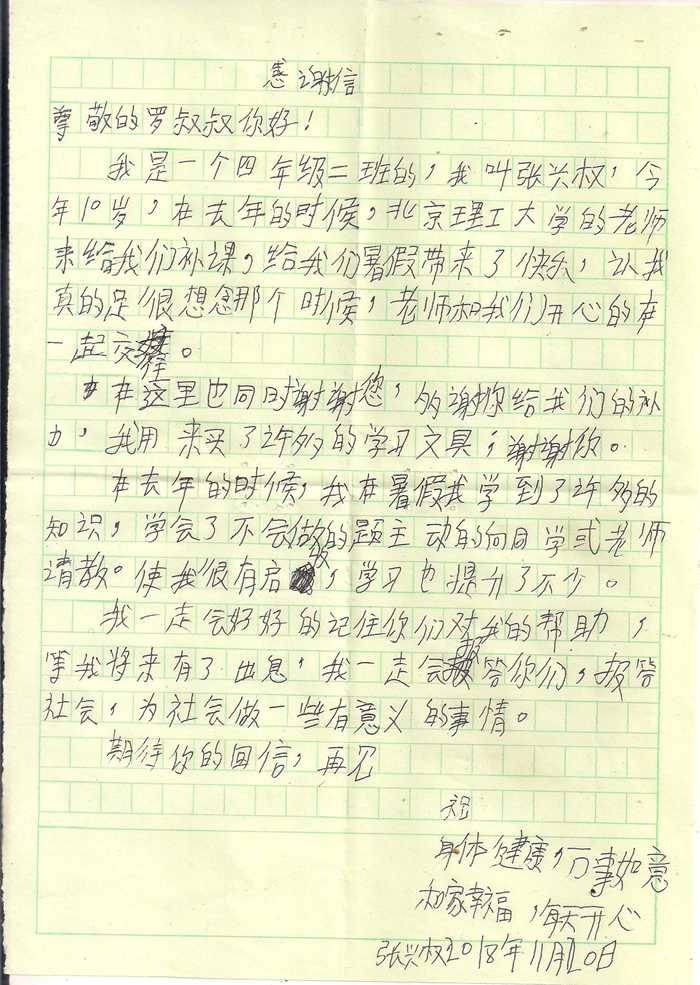 感谢信
尊敬的罗叔叔你好！
我是一个四年级二班的，我叫张兴权，今
年10岁，在去年的时候，北京理工大学的老师
来给我们补课，给我们暑假带来了快乐，认我
真的是很想念那个时候，老师和我们开心的在
一起交择。
在这里也同时谢谢您，多谢你给我们的补
力，我用来买了许多的学习文具，谢谢你。
在去年的时候，我在暑假我学到了许多的
知识，学会了不会做的题主动的向同学或老师
请教。使我很有启发，学习也提升了不少。
我一走会好好的记住你们对我的帮助，
等我将来有了出息，我一走会报答你们，报答
社会，为社会做一些有意义的事情。
期待你的回信，再见
祝
身体健康，万事如意
和家幸福，每天开心
张兴权2018年11月20日